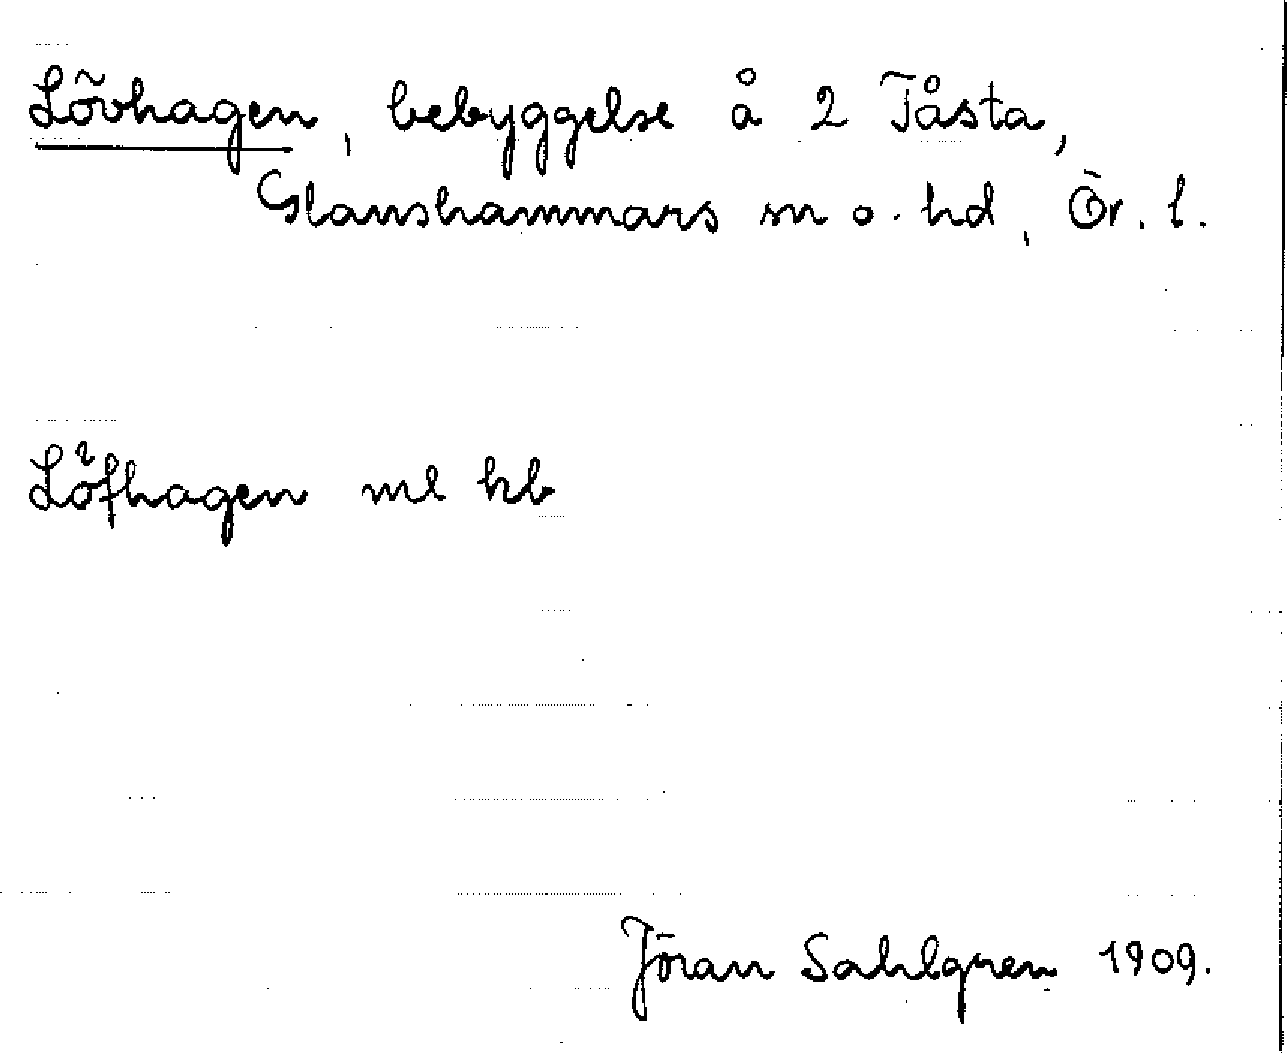 Lövhagen, bebyggelse å 2 Tåsta,
Glanshammars sn o. hd, Ör. l.
Löfhagen ml kb
Jöran Sahlgren 1909.